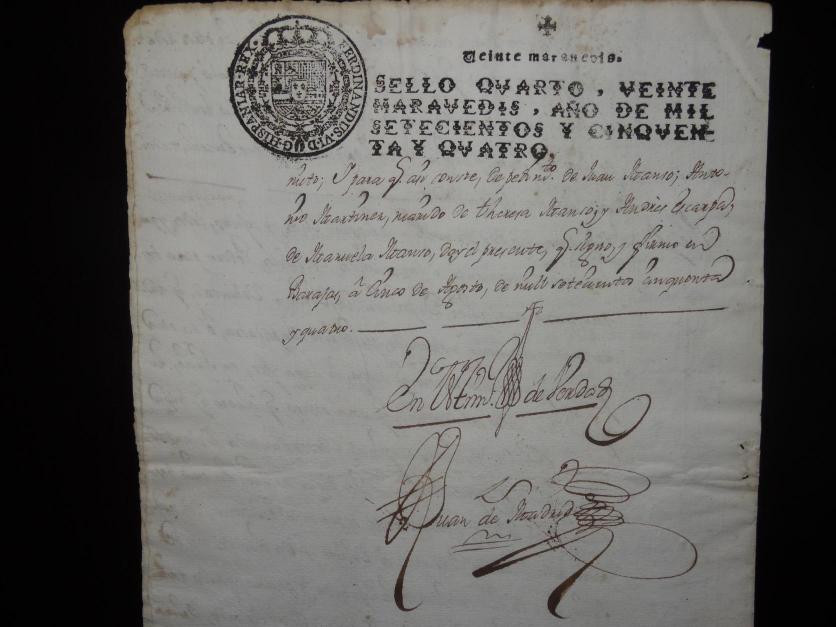 FERDINANDUS·VI·D·G·HISPANIAR·REX·
Veinte maravedis.
SELLO QVARTO, VEINTE
MARAVEDIS, AÑO DE MIL
SETECIENTOS Y CINQVEN-
TA Y QVATRO.
para q. asi conste, de pedim.to de Juan Manso; Anto-
nio Martinez, marido de theresa Manso; y Andres Escarpa,
de Manuela Manso, doy el presente, q. signo, y firmo en
Barajas, à Cinco de Agosto, de mill setecientos cinquenta
y quatro.
En Testim.o de Verdad
Juan de Madrid